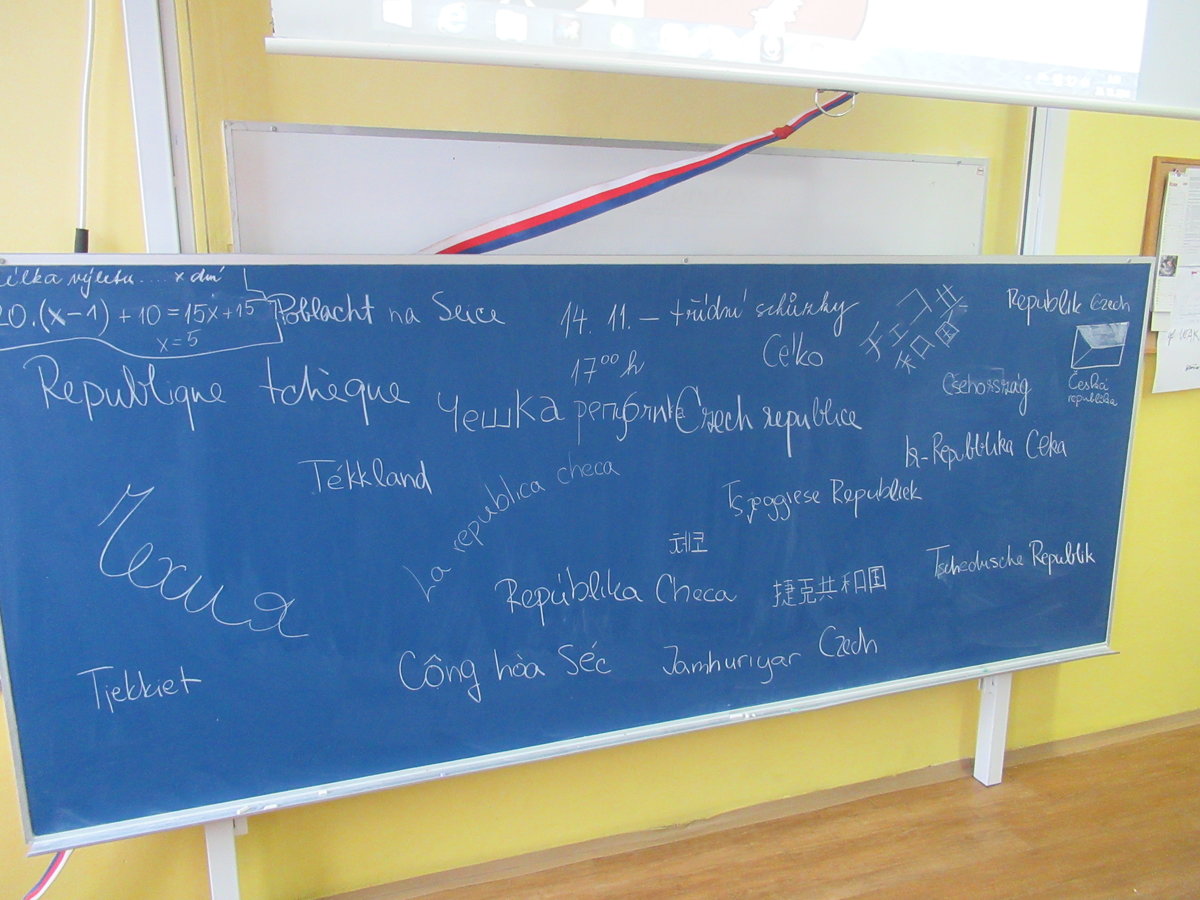 délka výletu .... x dní
20.(x-1) + 10 = 15x + 15
x = 5
Poblacht na Seice
14. 11. – třídní schůzky
17⁰⁰ h
Celko
チェコ共和国
Republik Czech
Česká
republika
Csehország
Republique tchèque
Чешка република
Czech republice
Ir-Repubblika Ceka
Tékkland
La republica checa
Tsjeggiese Republiek
체코
Чехия
Repúblika Checa
捷克共和国
Tschechische Republik
Tjekkiet
Cộng hòa Séc
Jamhuriyar Czech